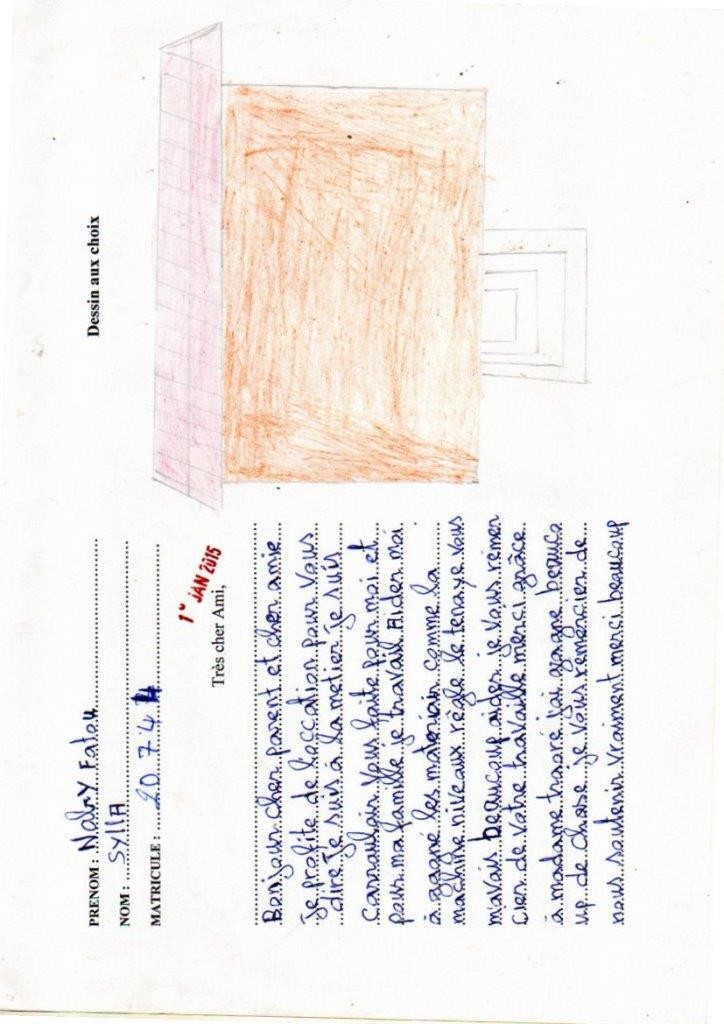 Dessin aux choix
PRENOM : Nabry Fatou
NOM : SYllA
MATRICULE : 20 7 4 4
1er JAN 2015
Très cher Ami,
Bonjour cher parent et cher amie
Je profite de l'occation pour Vous
dire Je suis à la metier Je suis
Vous faite pour moi et
pour ma famille je travail Aider moi
à gagné les materiau comme la
machine niveaux règle le tenaye vous
mavais beaucoup aider je Vous rémer
Cier de votre travaille merci grâce
à madame traoré j'ai gagné beauco
up de chose je vous remercier de
nous soutenir vraiment merci beaucoup